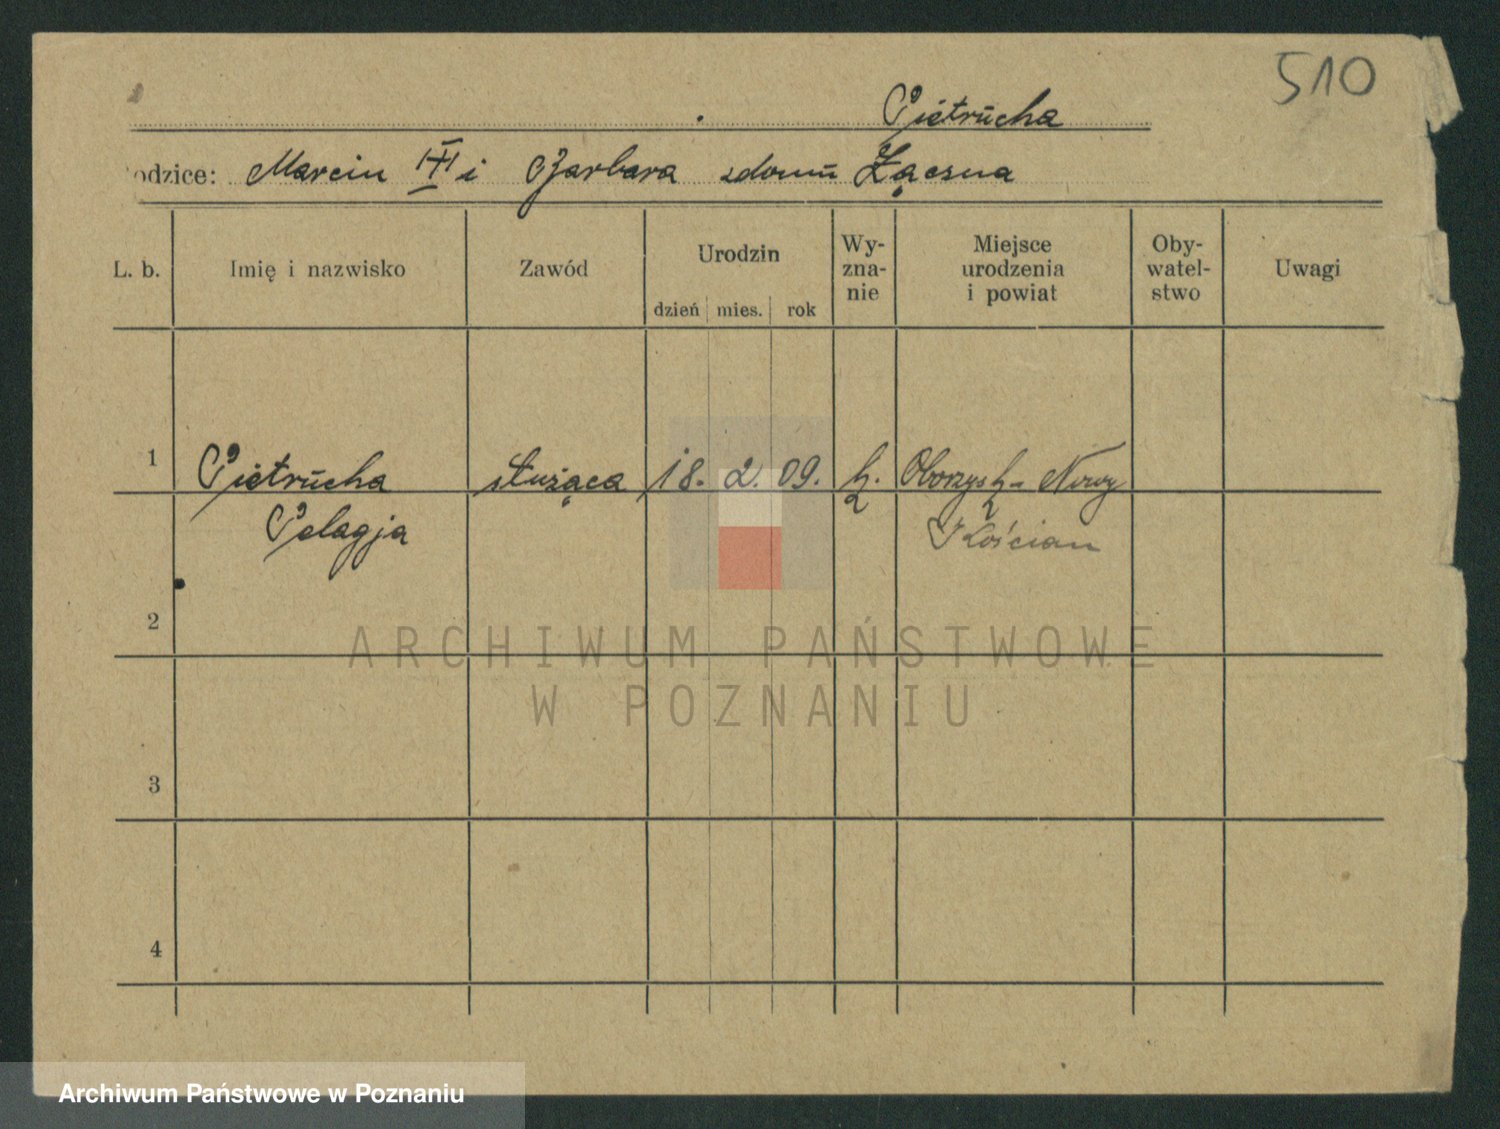 510
Pietrucha
odzice: Marcin III i Barbara zdomu Łączna
L. b. Imię i nazwisko Zawód Urodzin dzień mies. rok Wy-zna-nie Miejsce urodzenia i powiat Oby-watel-stwo Uwagi
1 Pietrucha służąca 18. 2. 09. k. Oborzysk- Nowy
Pelagja Kościan
2
ARCHIWUM PAŃSTWOWE
W POZNANIU
3
4
Archiwum Państwowe w Poznaniu